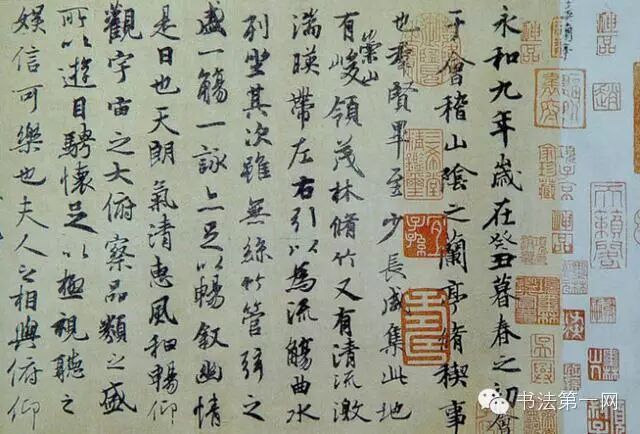 永和九年歲在癸丑暮春之初會
于會稽山陰之蘭亭脩稧事
也群賢畢至少長咸集此地
有崇山峻領茂林脩竹又有清流激
湍暎帶左右引以為流觴曲水
列坐其次雖無絲竹管弦之
盛一觴一詠亦足以暢敘幽情
是日也天朗氣清惠風和暢仰
觀宇宙之大俯察品類之盛
所以遊目騁懷足以極視聽之
娛信可樂也夫人之相與俯仰
神品
天籟閣
书法第一网